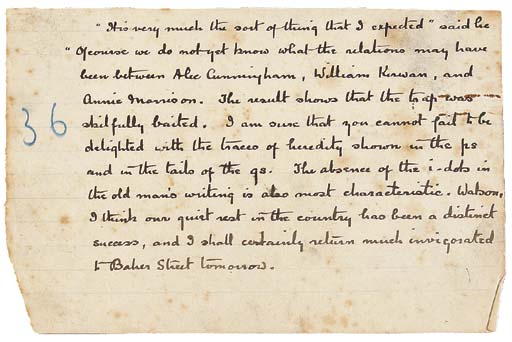 "It is very much the sort of thing that I expected" said he
"Ofcourse we do not yet know what the relations may have
been between Alec Cunningham, William Kirwan, and
Annie Morrison. The result shows that the trap was
skilfully baited. I am sure that you cannot fail to be
delighted with the traces of heredity shown in the ps
and in the tails of the gs. The absence of the i-dots in
the old mans writing is also most characteristic. Watson,
I think our quiet rest in the country has been a distinct
success, and I shall certainly return much invigorated
to Baker Street tomorrow.
36